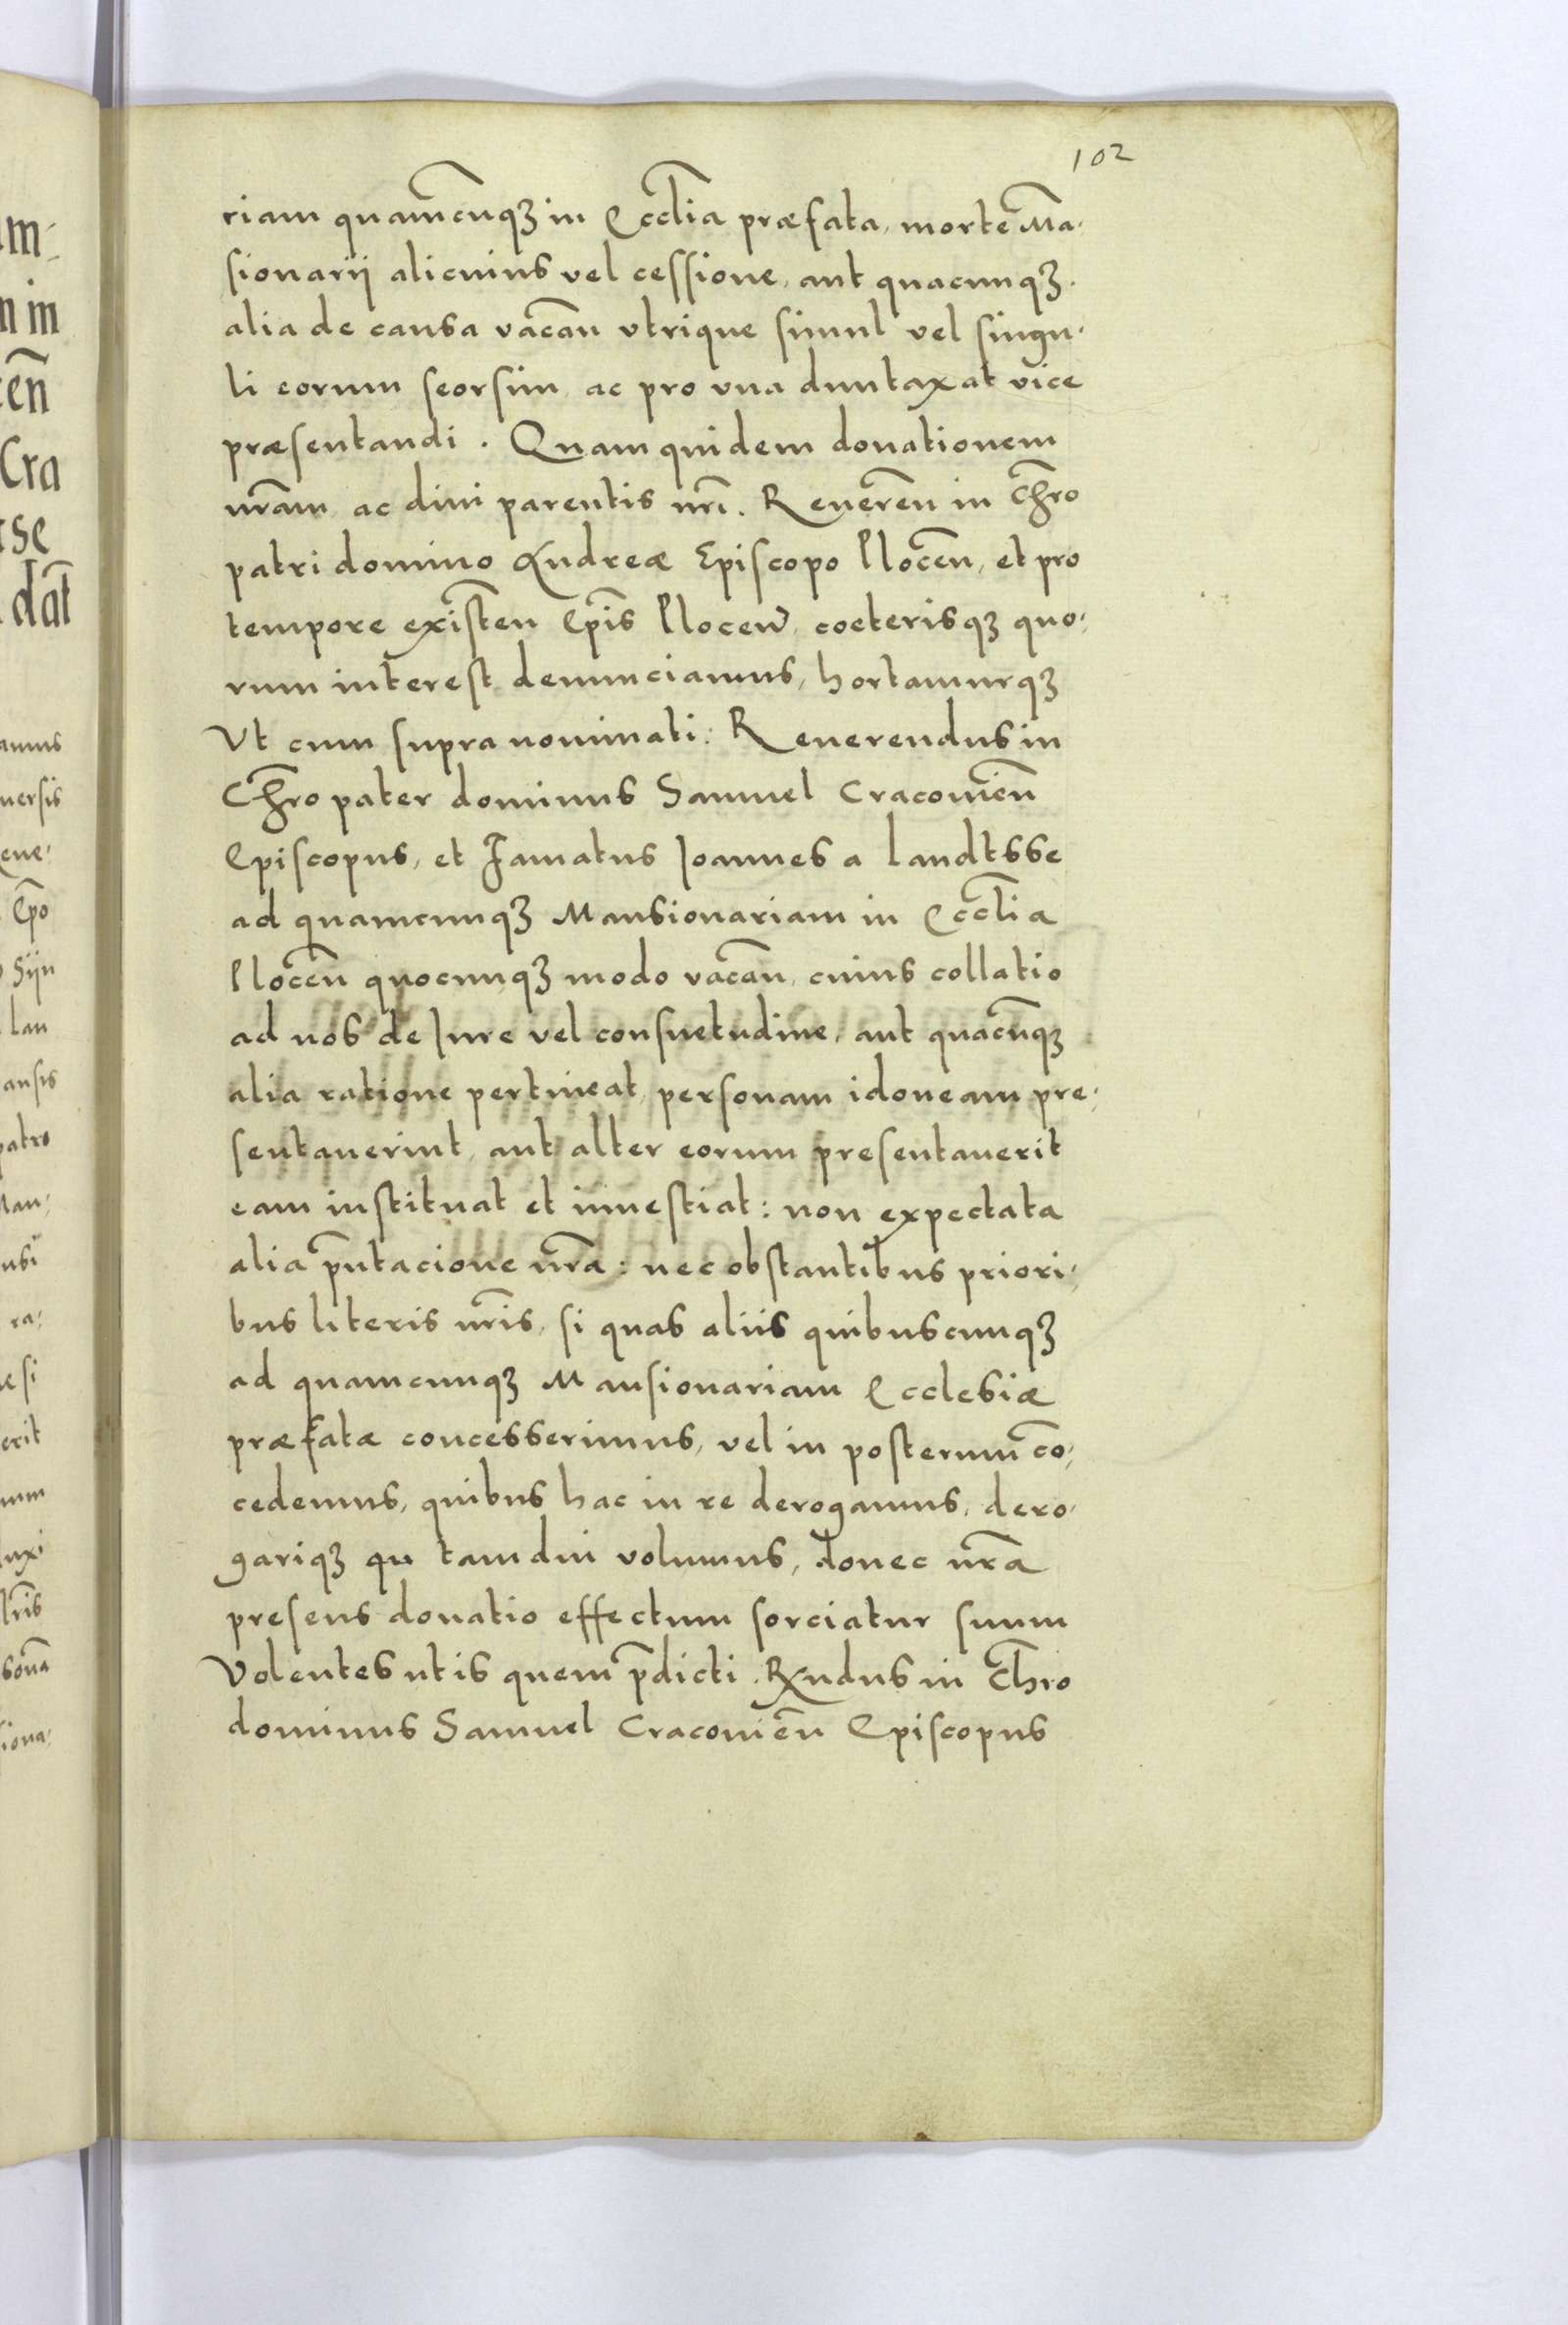 102
riam quam̃cunqꝫ in Eccl̃ia præfata, morte Mã
sionarij alicuius vel cessione, aut quacunqꝫ
alia de causa vacan̄ vtrique simul vel singu
li eorum seorsim ac pro vna duntaxat vice
præsentandi. Quam quidem donationem
nr̃am ac diui parentis nr̃i. Reueren̄ in Chr̃o
patri domino Andreæ Episcopo Plocen̄, et pro
tempore existen̄ Ep̃is Plocen̄, coeterisqꝫ quo-
rum interest denunciamus, hortamurqꝫ
Vt cum supra nominati: Reuerendus in
Chr̃o pater dominus Samuel Cracouien̄
Episcopus, et Famatus Joannes a Landtsse
ad quamcunqꝫ Mansionariam in Eccl̃ia
Plocen̄ quocunqꝫ modo vacan̄, cuius collatio
ad nos de Jure vel consuetudine, aut quacũqꝫ
alia ratione pertineat, personam idoneam pre-
sentauerint, aut alter eorum presentauerit
eam instituat et inuestiat: non expectata
alia p̃ntacione nr̃a: nec obstantibus priori-
bus literis nr̃is, si quas aliis quibuscunqꝫ
ad quamcunqꝫ Mansionariam Ecclesiæ
præfatæ concesserimus, vel in posterum cõ-
cedemus, quibus hac in re derogamus, dero
gariqꝫ qu tamdiu volumus, donec nr̃a
presens donatio effectum sorciatur suum
Volentes ut is quem p̃dicti. Rndus in Chr̃o
dominus Samuel Cracouien̄ Episcopus
m-
n in
cen̄
Cra
rse
dat̃
amus
uersis
eue-
Ep̃o
Sijn
lan
ansis
patro
Man-
ubi
ra-
e si
erit
num
uxi
l̃ris
sonã
siona-